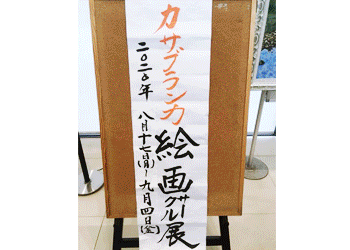 カサブランカ絵画サークル展
二〇二〇年 八月十七日(月)~九月四日(金)